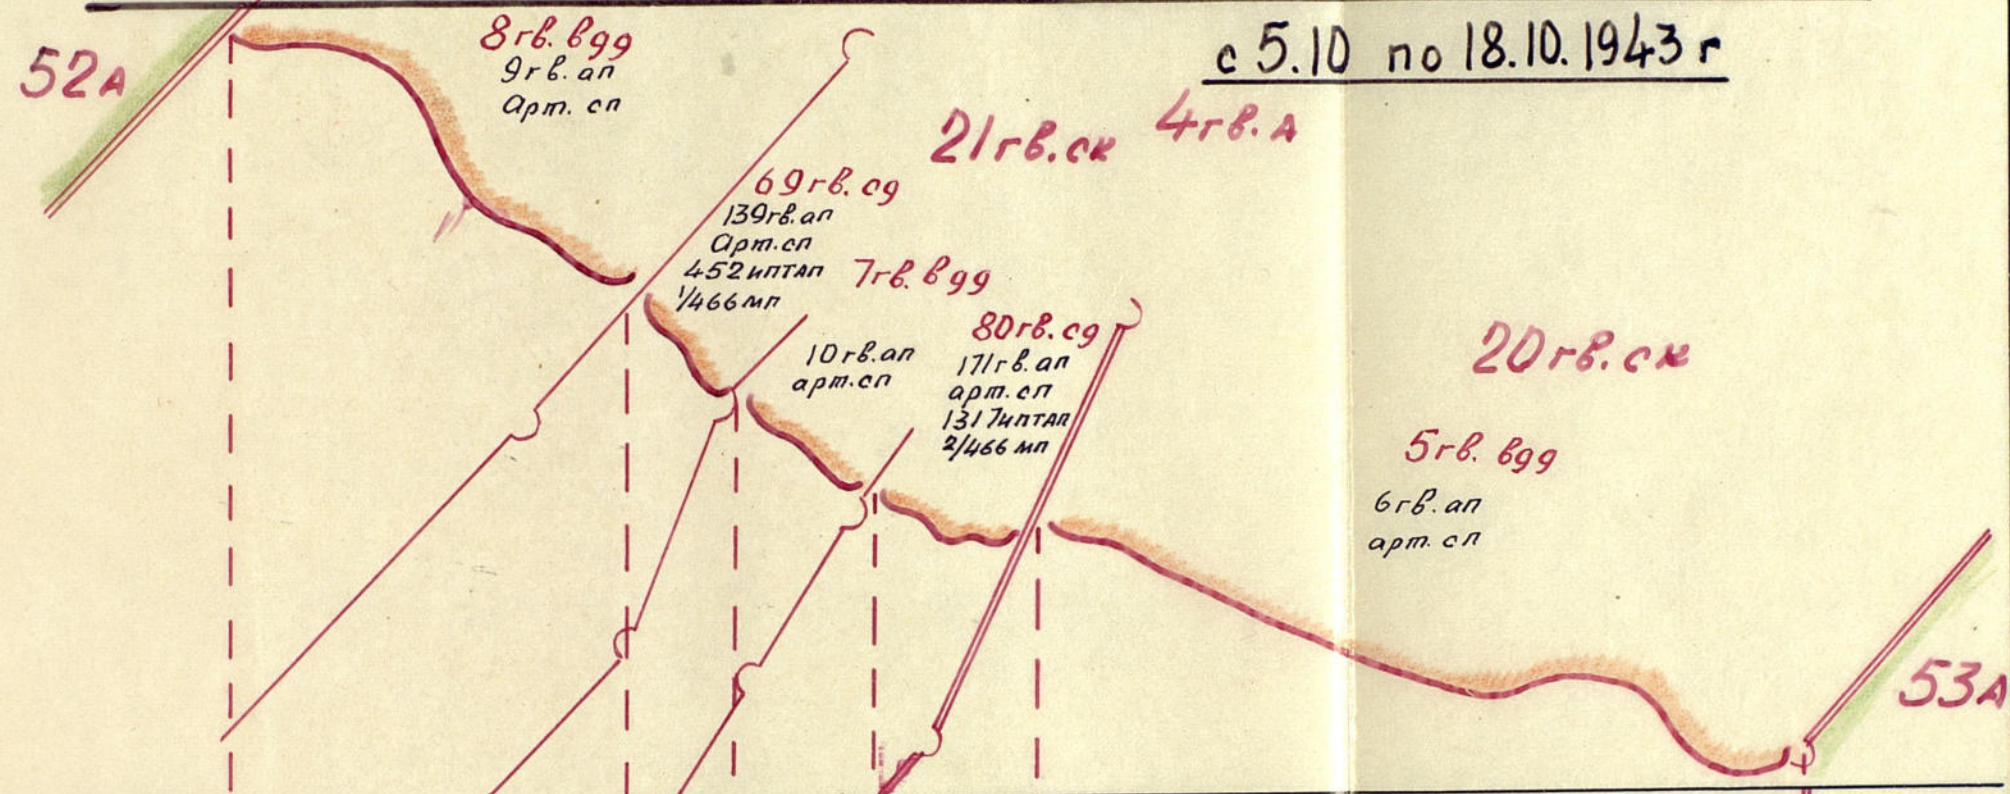 с 5.10 по 18.10.1943 г
52А
8 гв. вдд
9 гв. ап
Арт. сп
21 гв. ск
4 гв. А
69 гв. сд
139 гв. ап
Арт. сп
452 иптап
1/466 мп
7 гв. вдд
10 гв. ап
арт. сп
80 гв. сд
171 гв. ап
арт. сп
1317 иптап
2/466 мп
20 гв. ск
5 гв. вдд
6 гв. ап
арт. сп
53А